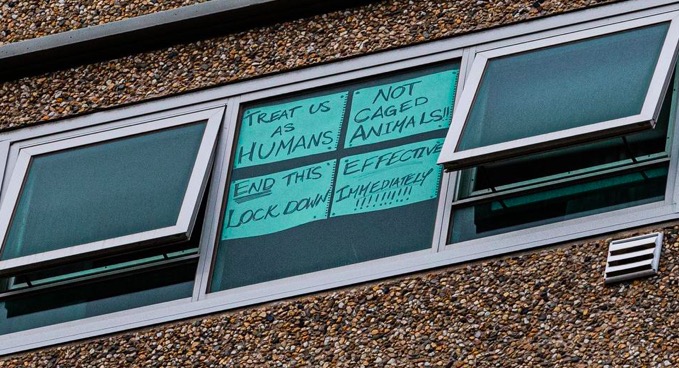 TREAT US
AS
HUMANS
NOT
CAGED
ANIMALS!!
END THIS
LOCK DOWN
EFFECTIVE
IMMEDIATELY
!!!!!!!!!